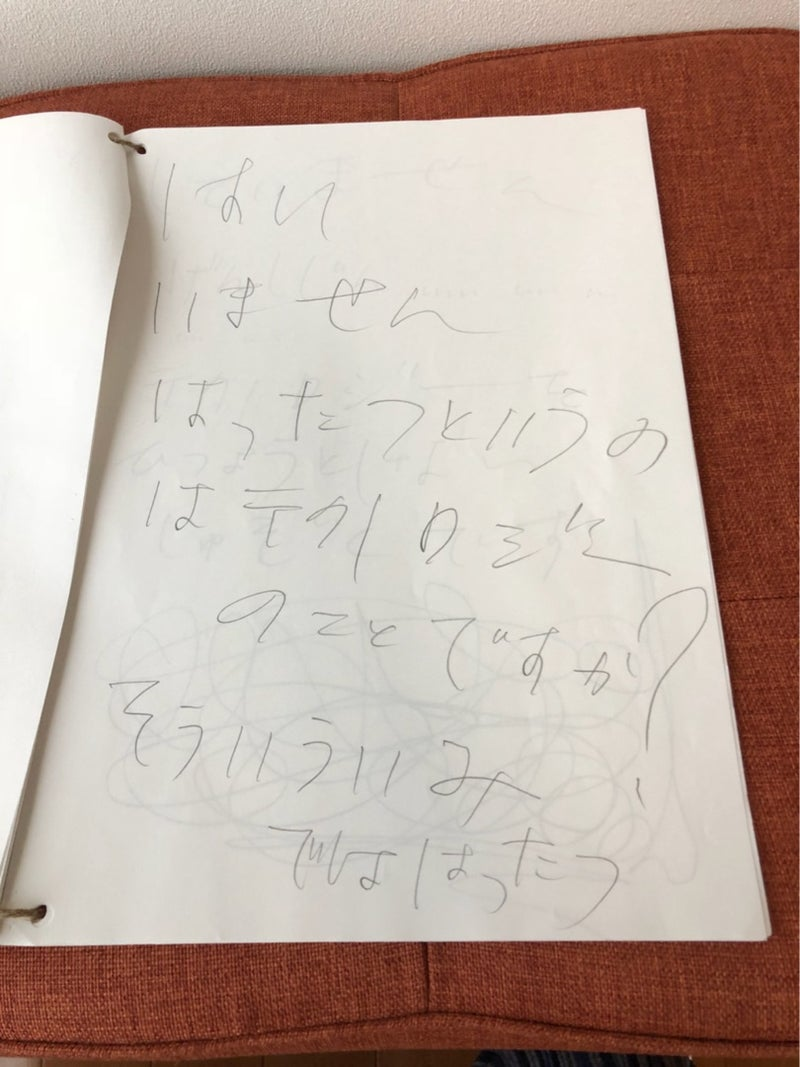 はい
いません
はったつというの
は
のことですか?
そういういみ
でははったつ